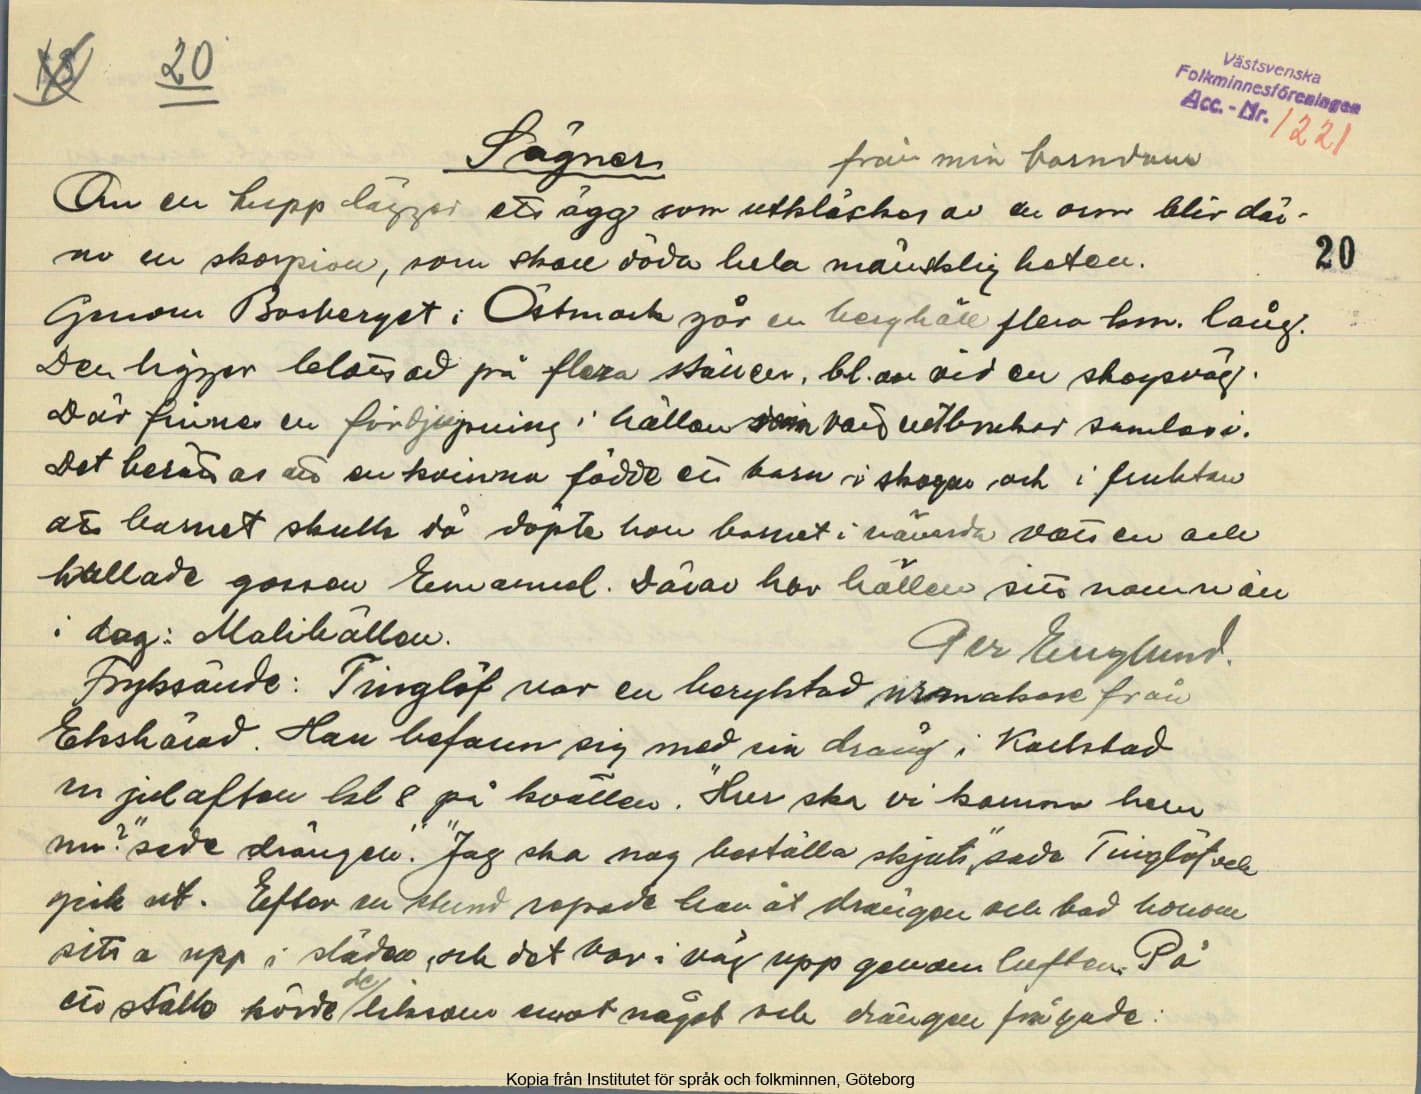 20
Västsvenska
Folkminnesföreningen
Acc. - Nr. 1221
Sägner från min barndom
Om en tupp lägger ett ägg som utkläckes av en orm blir där-
av en skorpion, som skall döda hela mänskligheten.
20
Genom Bosberget i Östmark går en berghäll flera km. lång.
Den ligger blottad på flera ställen, bl. an vid en skogsväg.
Där finnes en fördjupning i hällen som vatten samlas i.
Det berättas att en kvinna födde ett barn i skogen och i fruktan
att barnet skulle dö döpte hon barnet i nämnda vatten och
kallade gossen Emanuel. Därav har hällen sitt namn än
i dag: Malihällen.
Per Englund.
Fryksände: Tinglöf var en beryktad urmakare från
Ekshärad. Han befann sig med sin dräng i Karlstad
en julafton kl 8 på kvällen. "Hur ska vi komma hem
nu?" sade drängen. "Jag ska nog beställa skjuts", sade Tinglöf och
gick ut. Efter en stund ropade han åt drängen och bad honom
sitta upp i släden, och det bar i väg upp genom luften. På
ett ställe körde de liksom emot något och drängen frågade:
Kopia från Institutet för språk och folkminnen, Göteborg